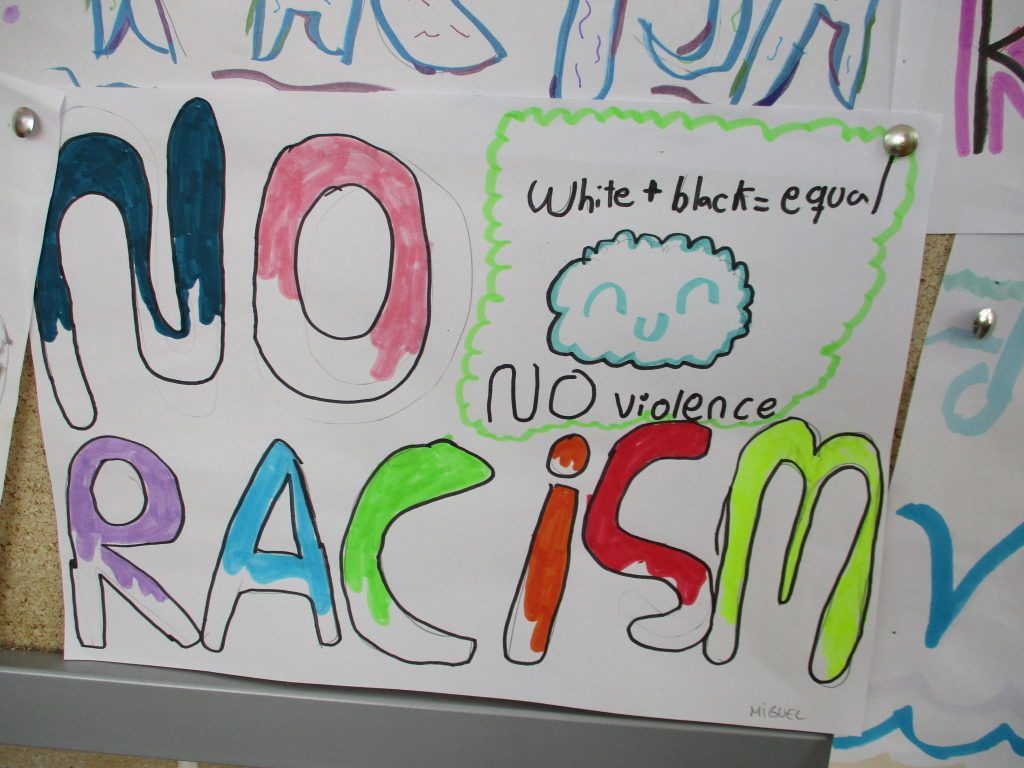 NO
White + black = equal
NO violence
RACiSM
MIGUEL